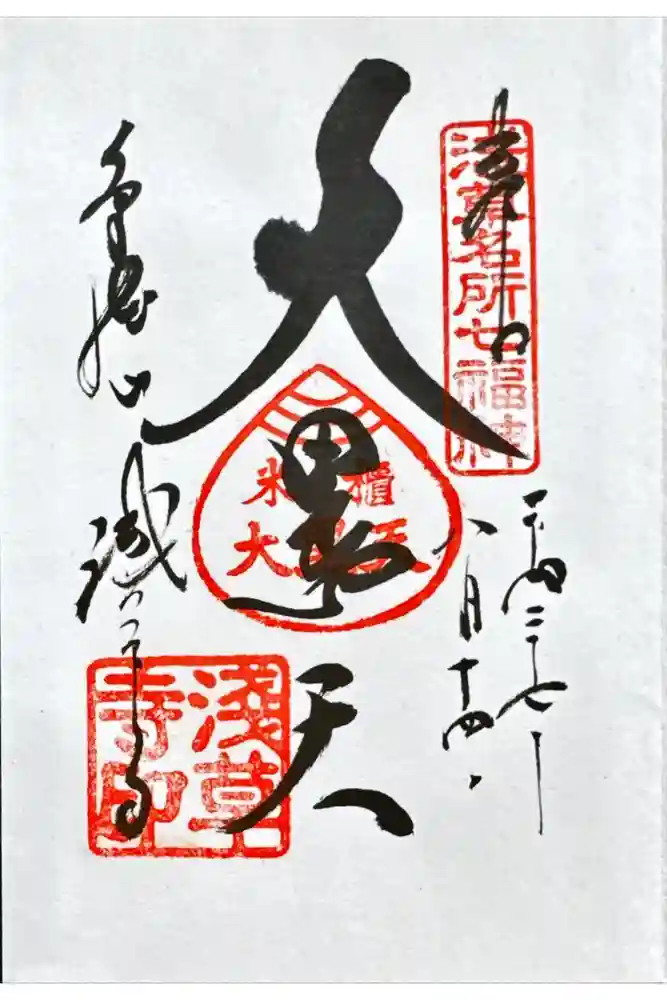 浅草名所七福神
平成二十七年
八月十四日
大黒天
米櫃
大黒天
金龍山
浅草寺
淺草寺印